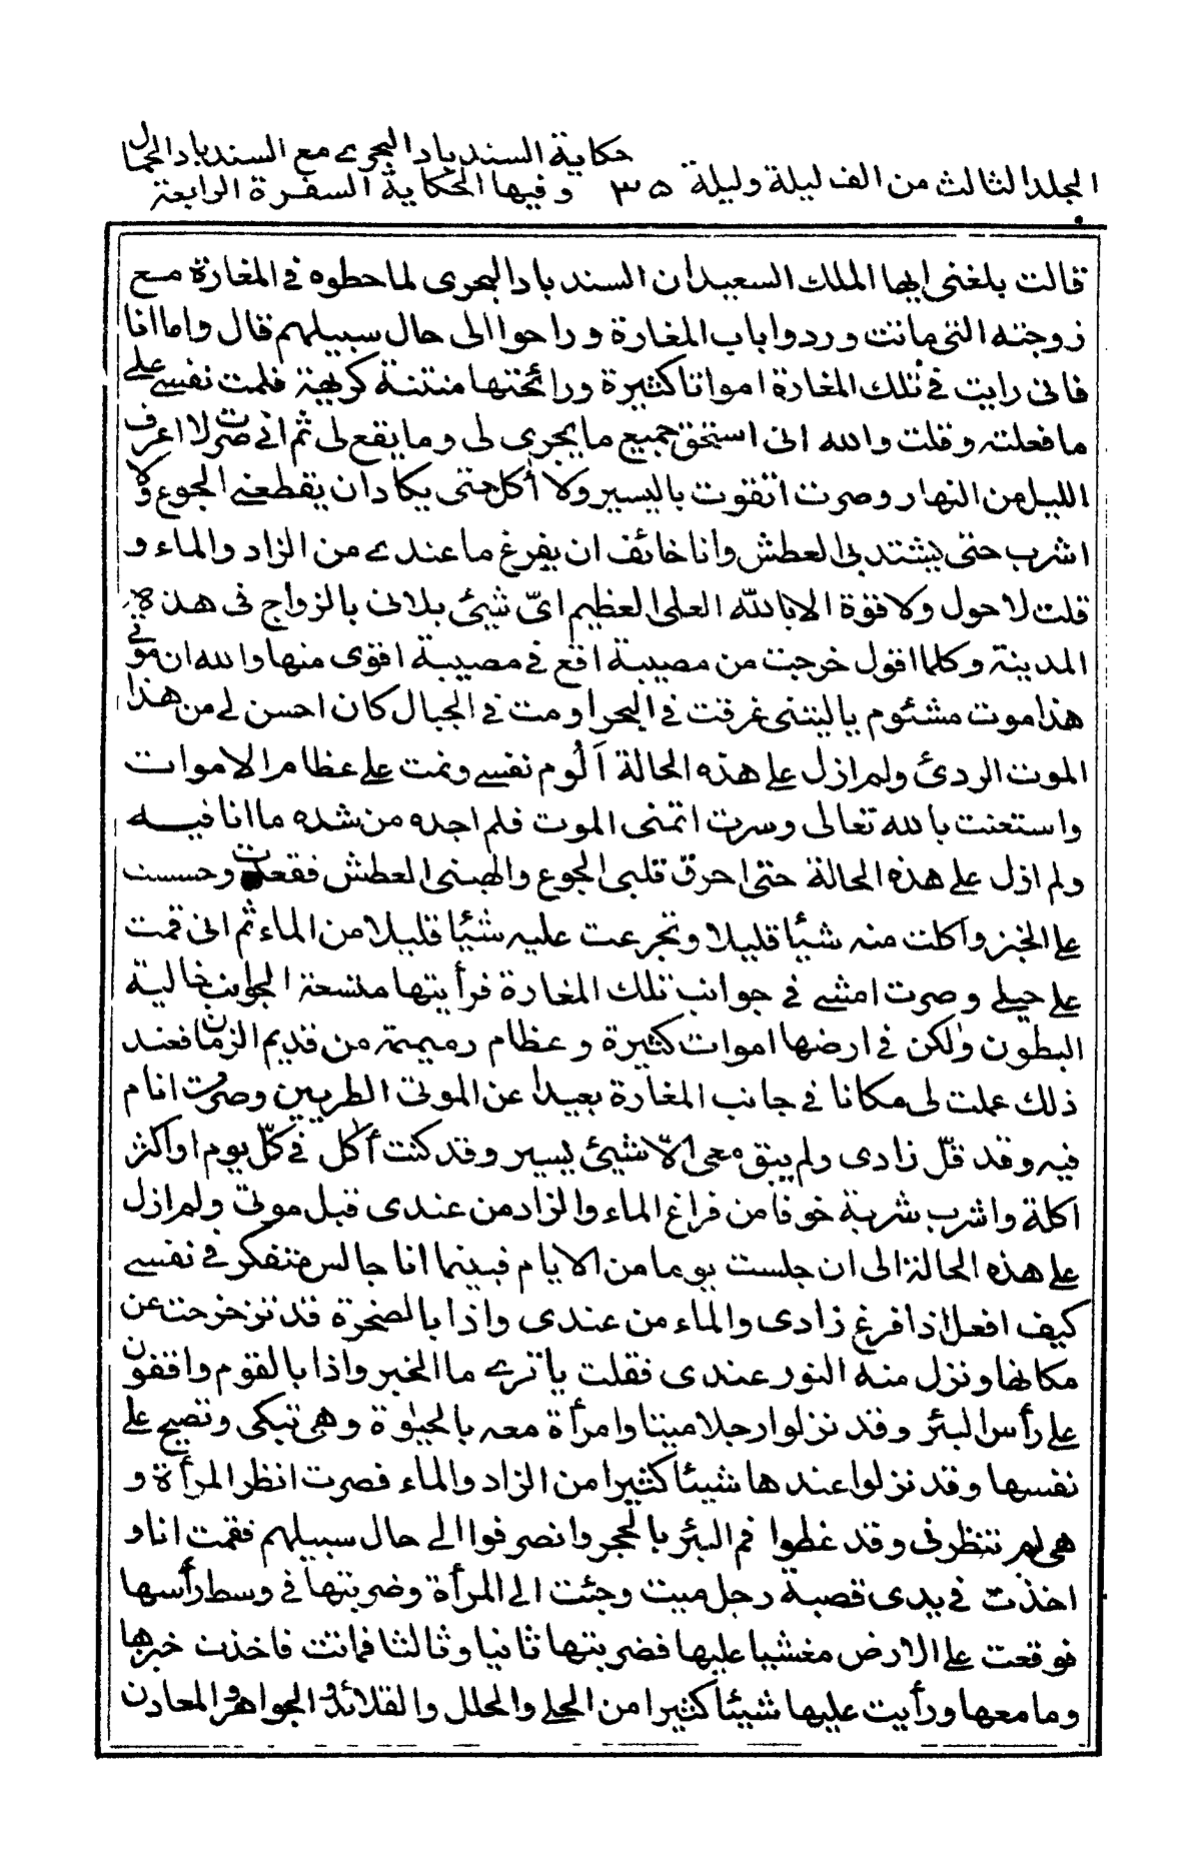 حكاية السندباد البحرى مع السندباد الحمال
المجلد الثالث من الف ليلة وليلة ٣٥ وفيها الحكاية السفرة الرابعة
قالت بلغنى ايها الملك السعيد ان السند باد البحرى لما حطوه فى المغارة مع
زوجته التى ماتت وردوا باب المغارة وراحوا الى حال سبيلهم قال واما انا
فانى رايت فى تلك المغارة امواتا كثيرة ورائحتها منتنة كريهة فلمت نفسى على
ما فعلته وقلت والله انى استحق جميع ما يجرى لى وما يقع لى ثم انى صرت لا اعرف
الليل من النهار وصرت اتقوت باليسير ولا أكل حتى يكاد ان يقطعنى الجوع ولا
اشرب حتى يشتد بى العطش وانا خائف ان يفرغ ما عندى من الزاد والماء و
قلت لا حول ولا قوة الا بالله العلى العظيم اىّ شيئ بلانى بالزواج فى هذه
المدينة وكلما اقول خرجت من مصيبة اقع فى مصيبة اقوى منها والله ان موتى
هذا موت مشئوم ياليتنى غرقت فى البحر او مت فى الجبال كان احسن لى من هذا
الموت الردئ ولم ازل على هذه الحالة اَلُوم نفسى ونمت على عظام الاموات
واستعنت بالله تعالى وسرت اتمنى الموت فلم اجده من شده ما انا فيه
ولم ازل على هذه الحالة حتى احرق قلبى الجوع والهبنى العطش فقعدت وحسست
على الخبز واكلت منه شيئًا قليلا وتجرعت عليه شيئًا قليلا من الماء ثم انى قمت
على حيلى وصرت امشى فى جوانب تلك المغارة فرأيتها متسعة الجوانب خالية
البطون ولكن فى ارضها اموات كثيرة وعظام رميمة من قديم الزمان فعند
ذلك عملت لى مكانا فى جانب المغارة بعيدا عن الموتى الطريين وصرت انام
فيه وقد قلّ زادى ولم يبق معى الّا شيئ يسير وقد كنت أكل فى كلّ يوم او اكثر
اكلة واشرب شربة خوفا من فراغ الماء والزاد من عندى قبل موتى ولم ازل
على هذه الحالة الى ان جلست يوما من الايام فبينما انا جالس متفكر فى نفسى
كيف افعل اذا فرغ زادى والماء من عندى واذا بالصخرة قد تزخزحت عن
مكانها ونزل منه النور عندى فقلت يا ترى ما الخبر واذا بالقوم واقفون
على رأس البئر وقد نزلوا رجلا ميتا وامرأة معه بالحيٰوة وهى تبكى وتصيح على
نفسها وقد نزلوا عندها شيئا كثيرا من الزاد والماء فصرت انظر المرأة و
هى لم تنظرنى وقد غطوا فم البئر بالحجر وانصرفوا الى حال سبيلهم فقمت انا و
اخذت فى يدى قصبة رجل ميت وجئت الى المرأة وضربتها فى وسط رأسها
فوقعت على الارض مغشيا عليها فضربتها ثانيا وثالثا فماتت فاخذت خبزها
وما معها ورأيت عليها شيئا كثيرا من الحلى والحلل والقلائد والجواهر والمعادن